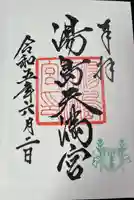 奉拝
湯島天満宮
令和五年六月二日